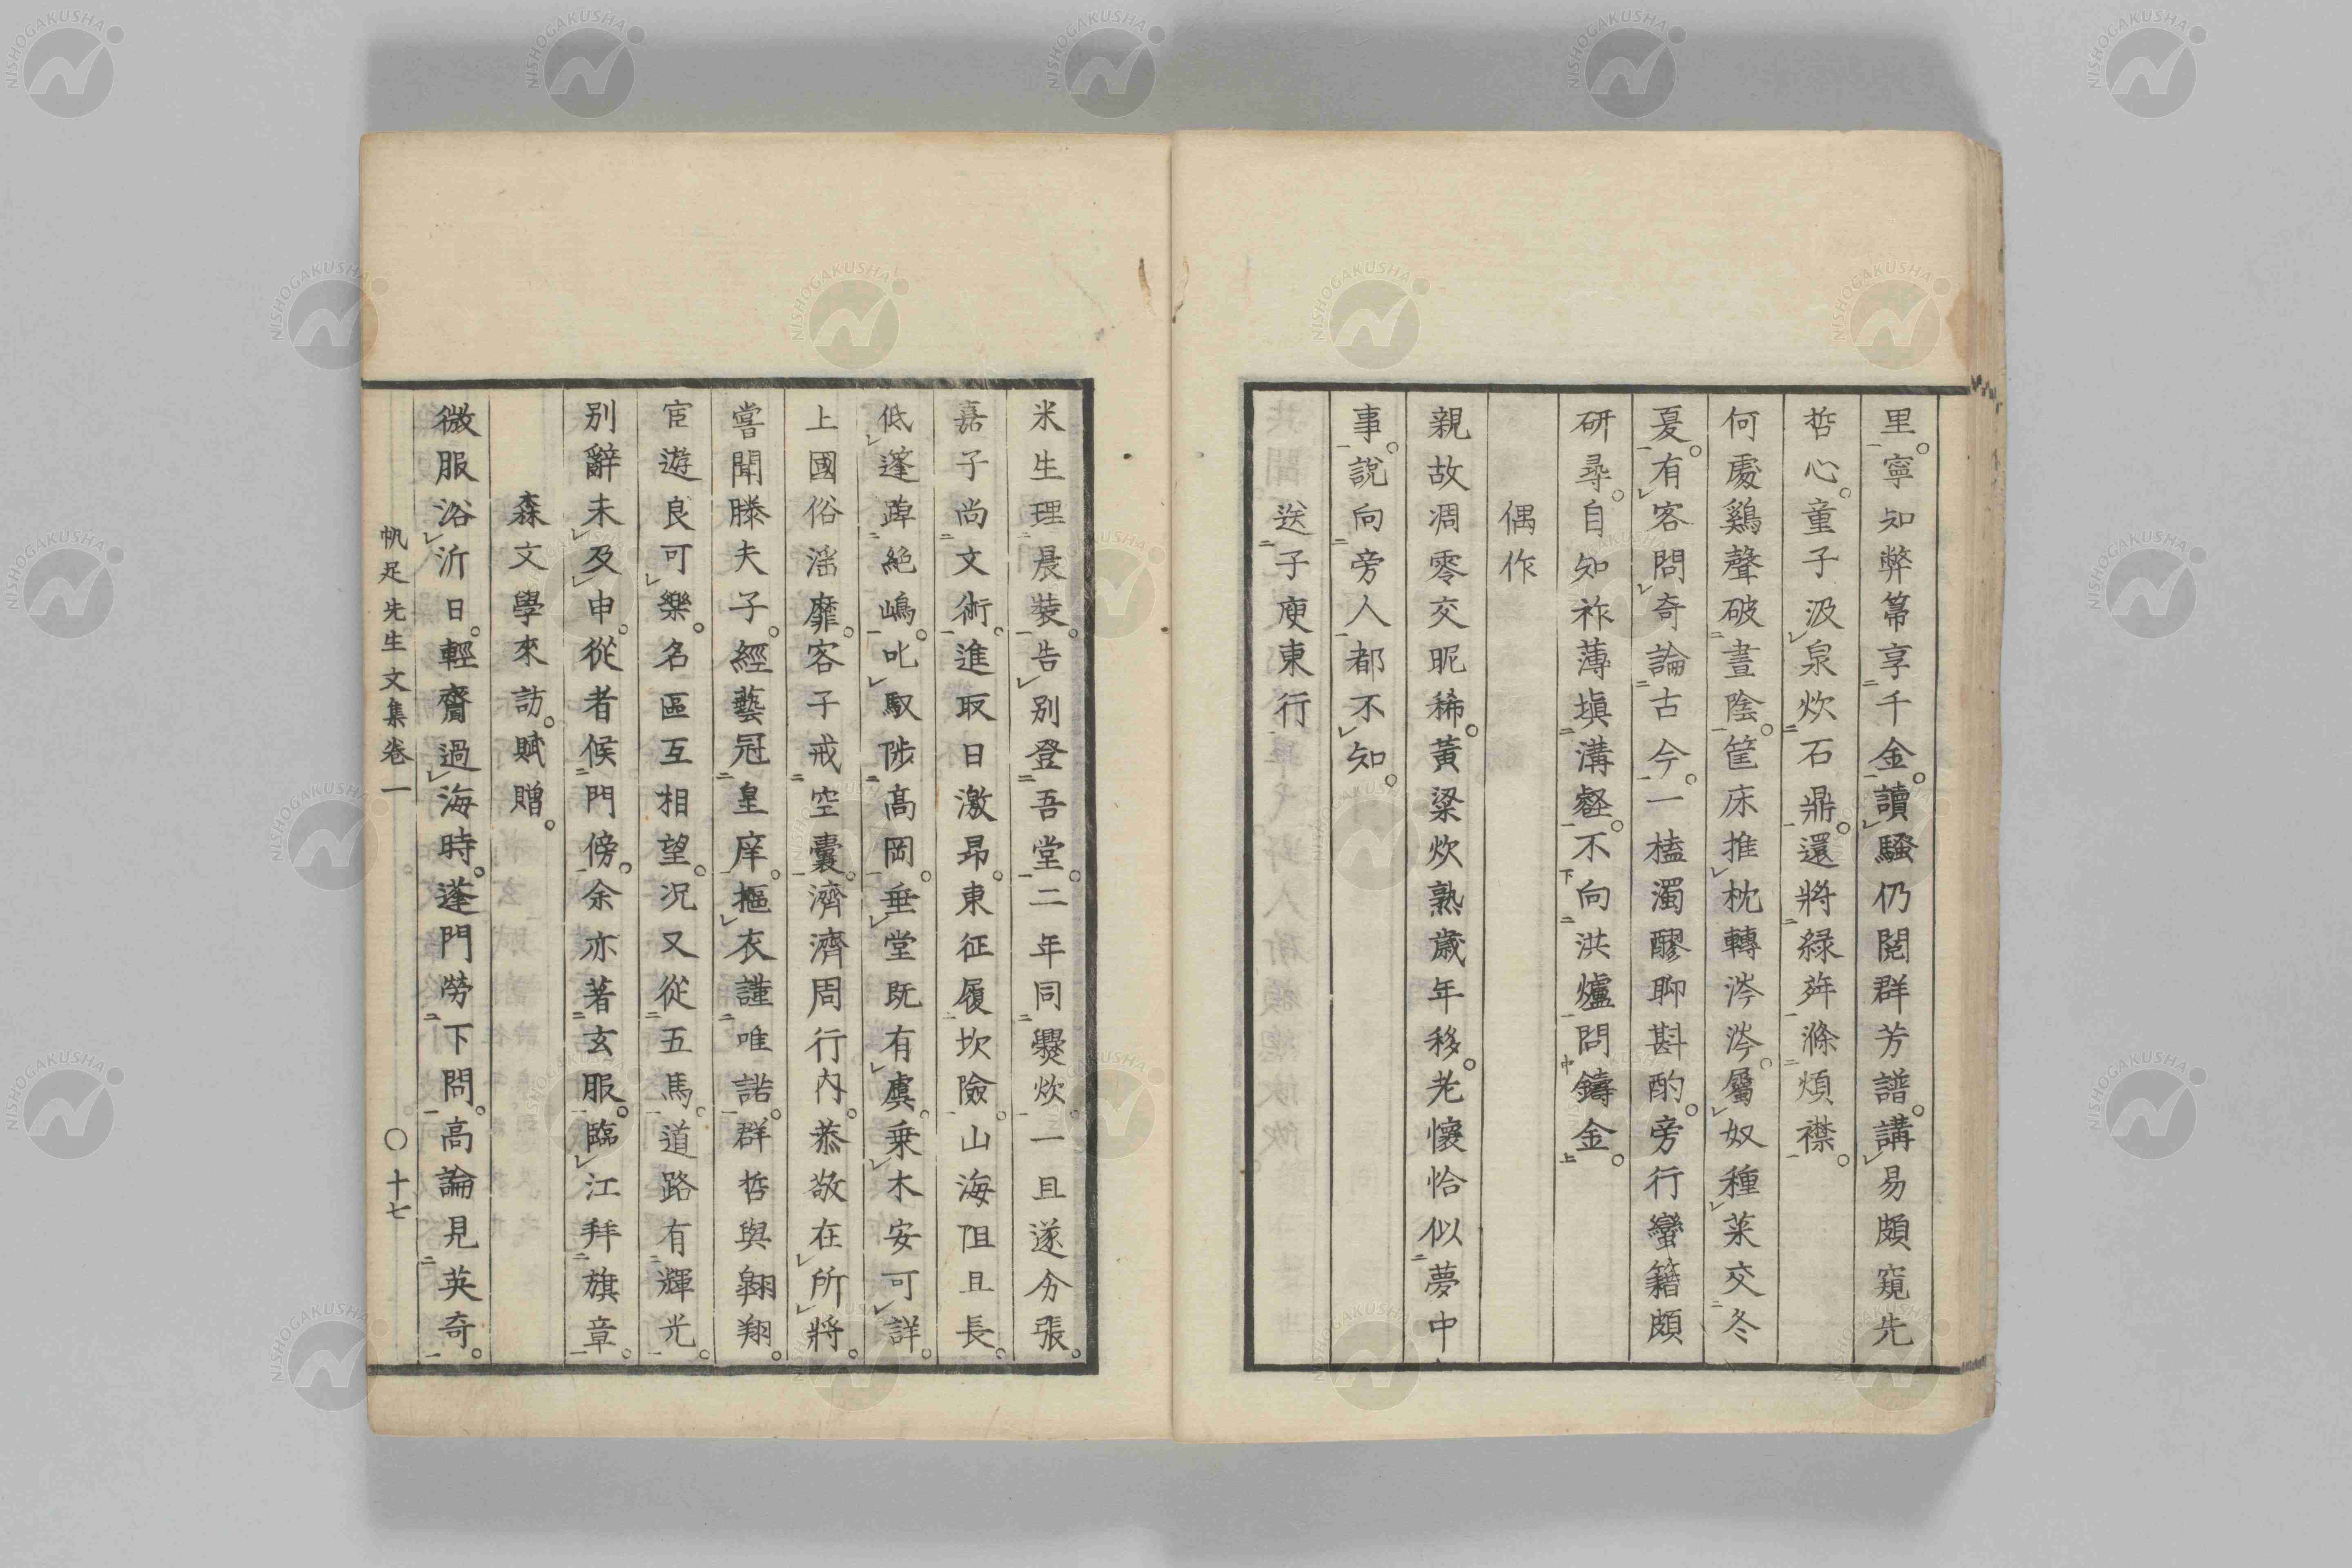 里。寧知弊箒享千金。讀騷仍閱群芳譜。講易頗窺先
哲心。童子汲泉炊石鼎。還將綠茾滌煩襟。
何處鷄聲破晝陰。筐床推枕轉涔涔。屬奴種菜交冬
夏。有客問奇論古今。一榼濁醪聊斟酌。旁行蠻籍頗
研尋。自知祚薄塡溝壑。不向洪爐問鑄金。
偶作
親故凋零交昵稀。黃粱炊熟歲年移。老懷恰似夢中
事。說向旁人都不知。
送子庾東行
米生理晨裝。告別登吾堂。二年同爨炊。一旦遂分張。
嘉子尚文術。進取日激昂。東征履坎險。山海阻且長。
低蓬蹕絕嶋。叱馭陟高岡。垂堂既有虞。乗木安可詳。
上國俗滛靡。客子戒空囊。濟濟周行內。恭敬在所將。
嘗聞滕夫子。經藝冠皇庠。摳衣謹唯諾。群哲與翱翔。
宦遊良可樂。名區互相望。况又從五馬。道路有輝光。
別辭未及申。從者候門傍。余亦著玄服。臨江拜旗章。
森文學來訪。賦贈。
微服浴沂日。輕齎過海時。蓬門勞下問。高論見英奇。
帆足先生文集卷一 〇十七
NISHOGAKUSHA